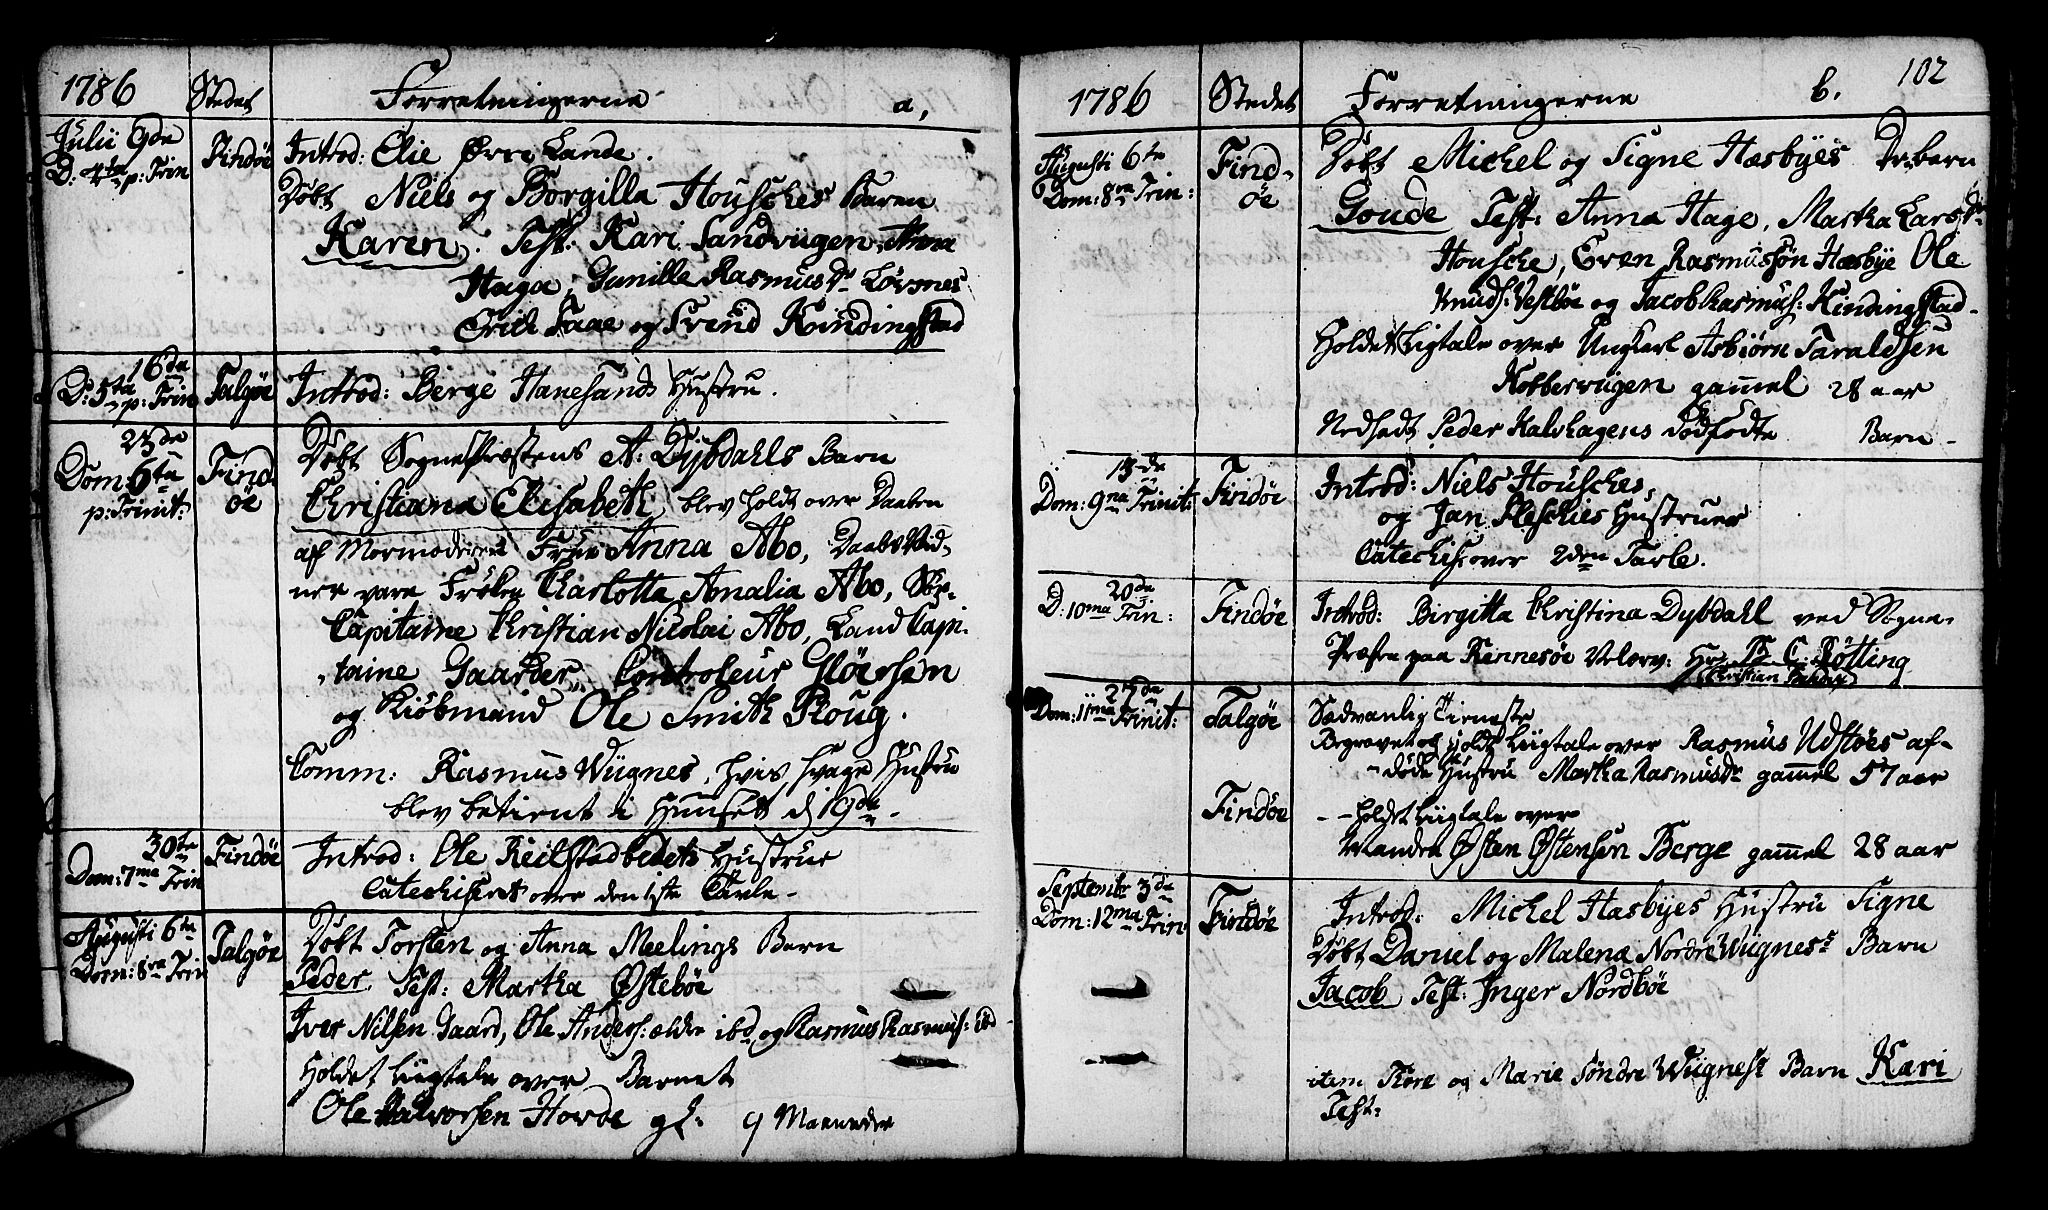 1786 Stedet Forretningerne a,
Julii 9de
D: 4ta p: Trin
Findöe
Introd: Elie Øvre Lande.
Döbt Niels og Borgilla Housches Baren
Karen. Test: Kari Sandviigen, Anna
Haga, Gunille Rasmusdr Lövsnes
Erich Faae og Svend Kindingstad
16de
D: 5ta p: Trin
Talgöe
Introd: Berge Hanesands Hustru.
23de
Dom: 6ta
p: Trinit:
Find-
öe
Döbt Sognepræstens A: Dybdahls Barn
Christiana Elisabeth blev holdt over Daaben
af Mormoderen Frue Anna Abo, Daabs Vid-
ner vare Fröken Charlotta Amalia Abo, Söe-
Capitaine Christian Nicolai Abo, Land Capi-
taine Gaarder, Controleur Glöersen
og Kiöbmand Ole Smith Ploug.
Comm: Rasmus Wiignes, hvis svage Hustru
blev betient i Huuset d 19de
30te
Dom: 7ma Trin
Findöe
Introd: Ole Reilstadbedets Hustrue
Catechiseret over den 1ste Tavle
Augusti 6te
Dom: 8va Trin
Talgöe
Döbt Torsten og Anna Meelings Barn
Peder. Test: Martha Østeböe
Iver Nilsen Gaard, Ole Anders: ældre ibd og Rasmus Rasmus: ibd
Holdet Liigtale over Barnet
Ole Halvorsen Hovde gl: 9 Maaneder
1786 Stedet Forretningerne b. 102
Augusti 6te
Dom: 8va Trin:
Find-
öe
Döbt Michel og Signe Hæsbyes Dr: barn
Goude Test: Anna Hage, Martha Larsdr
Housche, Even Rasmussön Hæsbye Ole
Knuds: Vestböe og Jacob Rasmus: Kindingstad.
Holdet Liigtale over Ungkarl Asbiörn Taraldsen
Kobberviigen gammel 28 aar
Nedsadt Peder Kalvhagens dödfödte Barn
13de
Dom: 9na Trinit:
Findöe
Introd: Niels Housches,
og Jan Fleschies Hustruer
Catechis: over 2den Tavle.
20de
D: 10ma Trin:
Findöe
Introd: Birgitta Christina Dybdahl ved Sogne-
Præsten paa Rennesöe Velærv: Hr B. C. Rötting
27de
Dom: 11ma Trinit:
Talgöe
Sædvanlig Tieneste
Begravet og holdt Liigtale over Rasmus Udstöes af-
döde Hustru Martha Rasmusdr gammel 57 aar
Findöe
- - holdet Liigtale over
Manden Østen Østensen Berge gammel 28 aar
Septembr 3de
Dom: 12ma Trin
Findöe
Introd: Michel Hæsbyes Hustru Signe
Döbt Daniel og Malena Nordre Wiignes's Barn
Jacob Test: Inger Nordböe
item Tore og Marie Söndre Wiignest Barn Kari
Test: